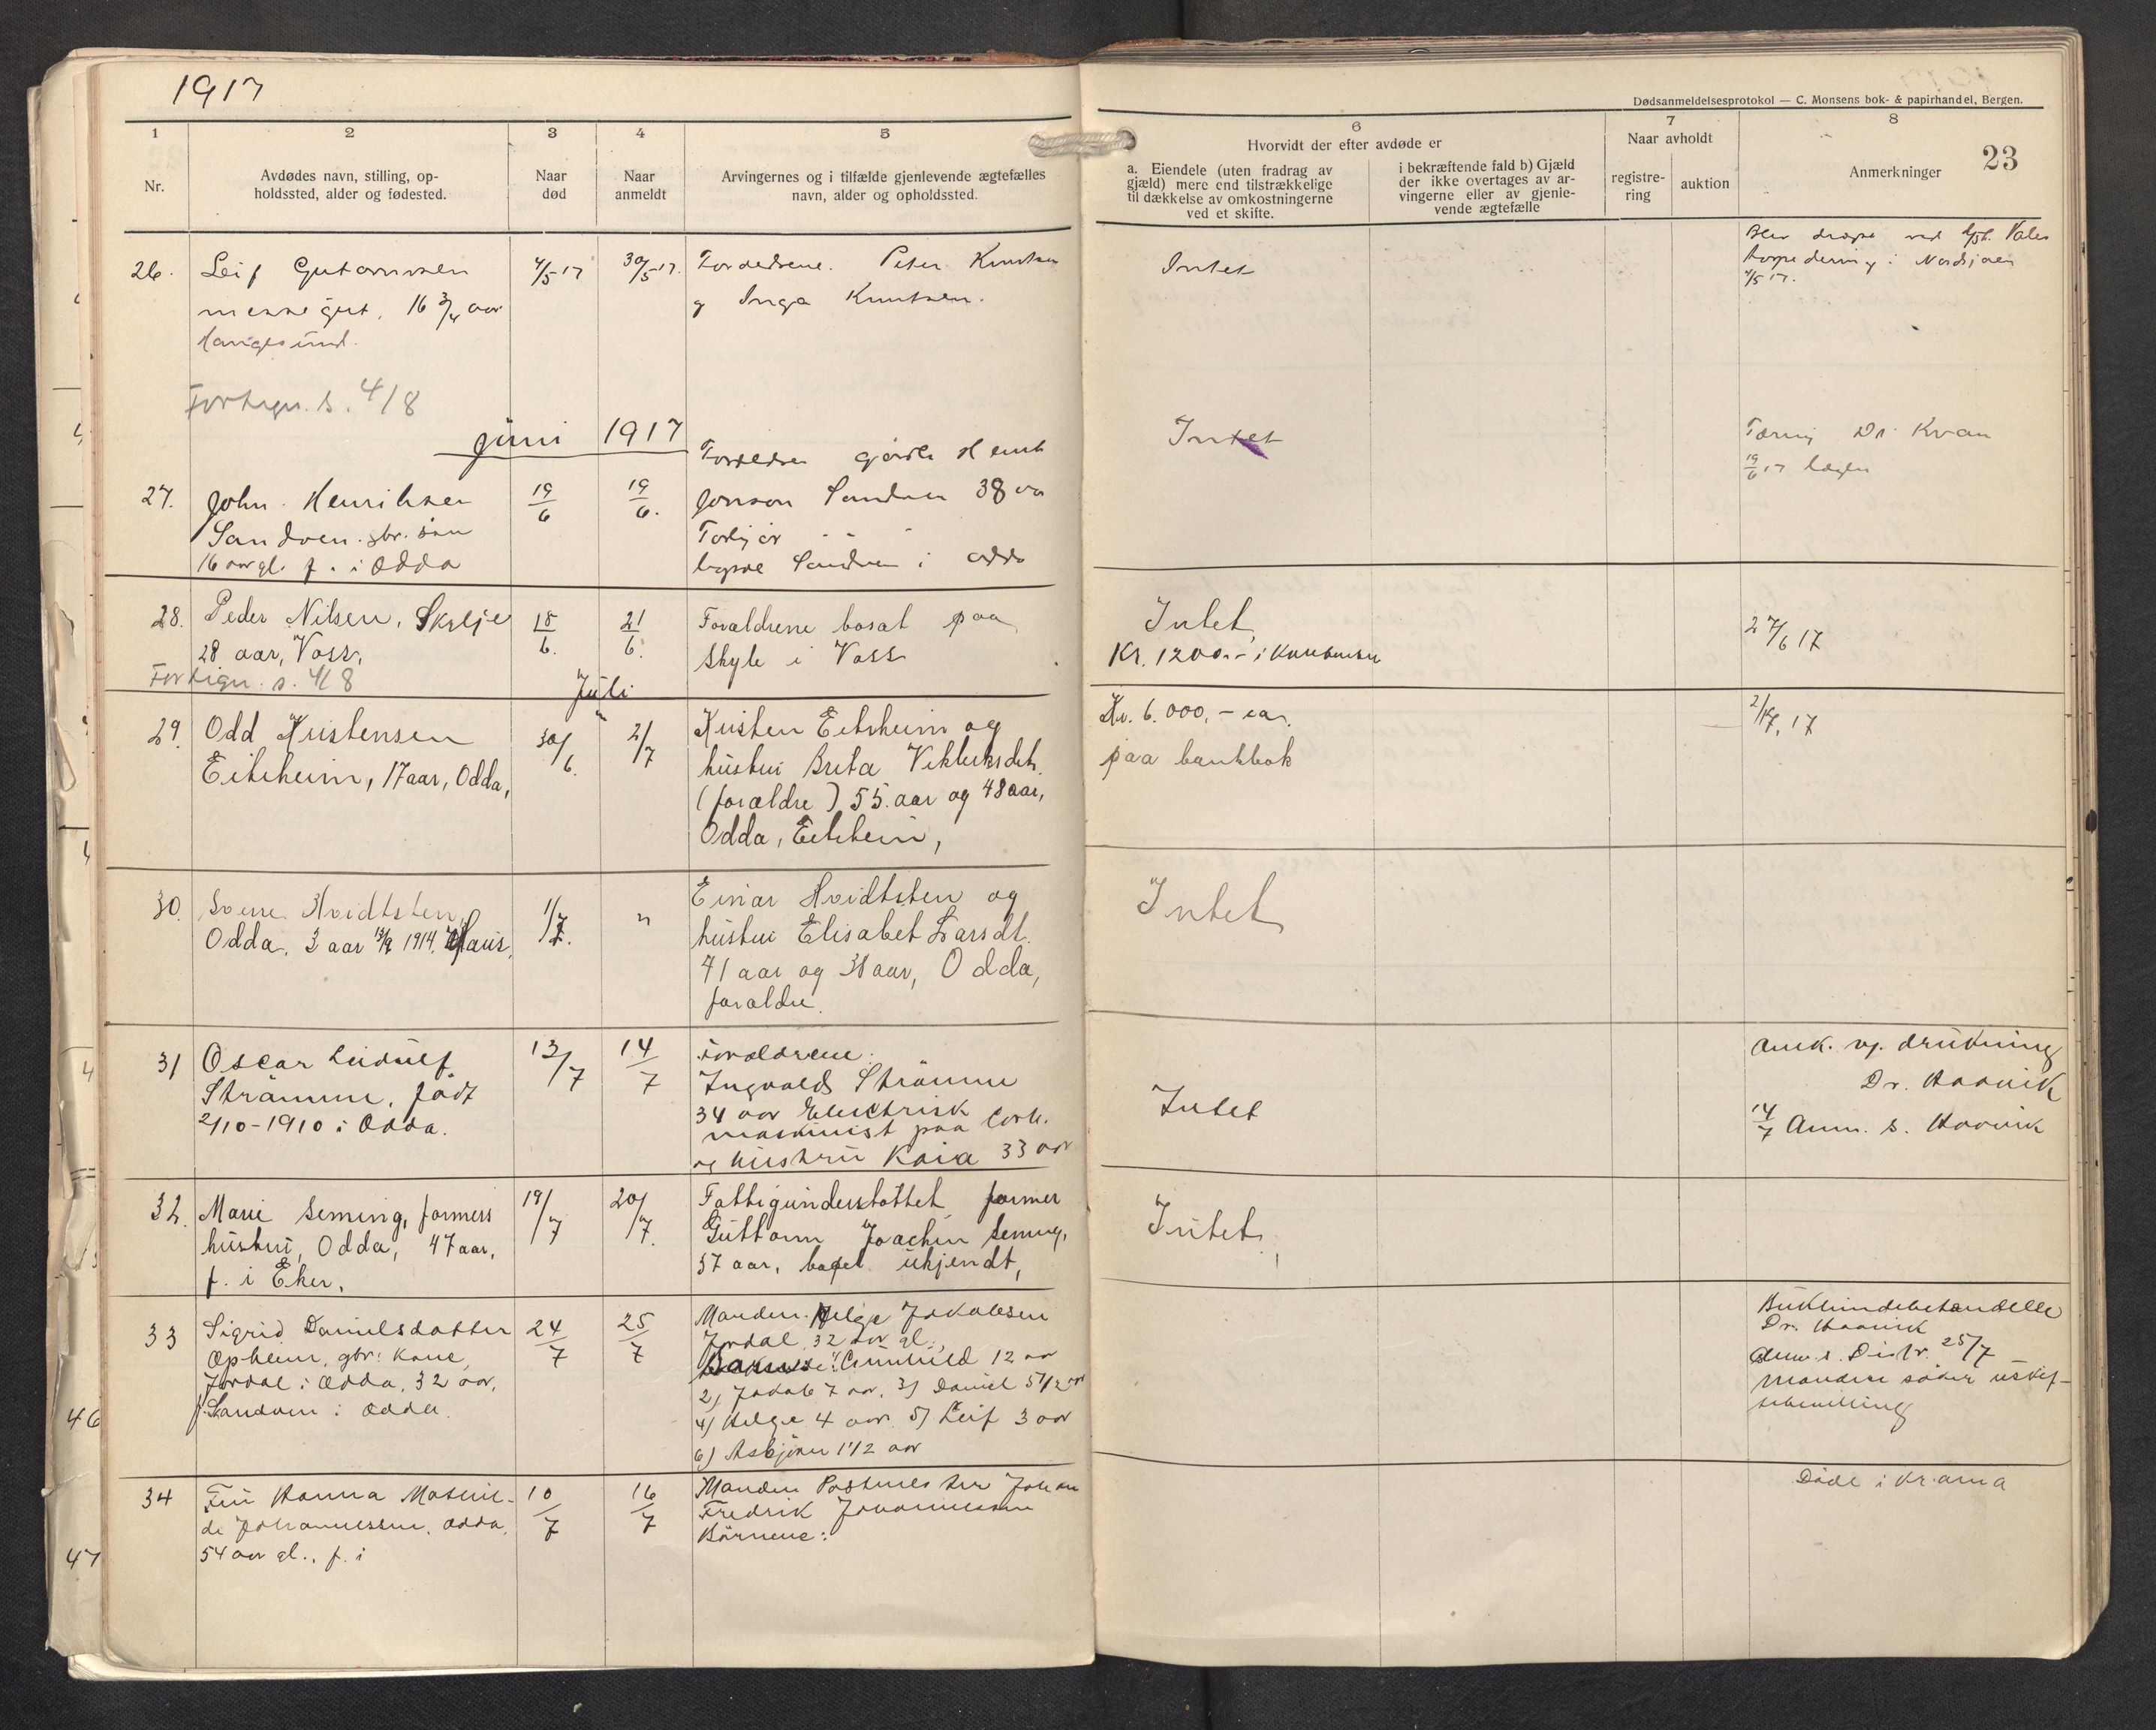 1917
Dødsanmeldelsesprotokol — C. Monsens bok- & papirhandel, Bergen.
23
1
2
3
4
5
6
7
8
Nr.
Avdødes navn, stilling, op-
holdssted, alder og fødested.
Naar
død
Naar
anmeldt
Arvingernes og i tilfælde gjenlevende ægtefælles
navn, alder og opholdssted.
Hvorvidt der efter avdøde er
a. Eiendele (uten fradrag av
gjæld) mere end tilstrækkelige
til dækkelse av omkostningerne
ved et skifte.
i bekræftende fald b) Gjæld
der ikke overtages av ar-
vingerne eller av gjenle-
vende ægtefælle
Naar avholdt
registre-
ring
auktion
Anmerkninger
26.
Leif
messegut. 16 3/4 aar
Haugesund.
Fortegn. s. 4/8
4/5 17
30/5 17.
Forældrene. Peter Knutsen
og Inga Knutsen.
Intet
Blev dræpt ved
torpedering i Nordsjøen
4/5 17.
Juni 1917
27.
John Henriksen
Sandven. gbr. søn
16 aar gl. f. i Odda
19/6
19/6.
Forældre
Jonson Sandven 38 aar
Sandven i Odda
Intet
Tæring Dr. Kvam
19/6 17
28.
Peder Nilsen, Skylje
28 aar, Voss,
Fortegn. s. 4/8
18/6.
21/6.
Forældrene bosat paa
Skyle i Voss
Intet,
Kr. 1200.- i
27/6 17
Juli
29.
Odd Kristensen
Eitrheim, 17 aar, Odda,
30/6.
2/7
Kristen Eitrheim og
hustru Brita
(forældre) 55 aar og 48 aar,
Odda, Eitrheim,
Kr. 6.000,- ca.
paa bankbok
2/7, 17
30.
Sverre Hvidtsten,
Odda, 3 aar 1914, Haus,
1/7.
"
Einar Hvidtsten og
hustru Elisabet Larsdt.
41 aar og 38 aar, Odda,
forældre.
Intet
31
Oscar Leidulf
Strømme, født
2/10-1910 i Odda.
13/7
14/7
Forældrene:
Ingvald Strømme
34 aar Electrisk
maskinist paa Carb.
og hustru Kaia 33 aar
Intet
Ank. vp. drukning
Dr. Haavik
14/7 Anm. s. Haavik
32.
Marie Seming, formers
hustru, Odda, 47 aar,
f. i Eker.
19/7
20/7.
Fattigunderstøttet former
Guttorm Joachim Seming,
57 aar, bopel ukjendt,
Intet
33
Sigrid Danielsdatter
Opheim, gbr. kone,
Jordal i Odda, 32 aar,
f. Sandven i Odda.
24/7
25/7
Manden. Helge Jakobsen
Jordal 32 aar gl.,
Børnene: 1/ Gunhild 12 aar
2) Jakob 7 aar, 3) Daniel 5 1/2 aar
4) Helge 4 aar 5) Leif 3 aar
6) Asbjørn 1 1/2 aar
Dr. Haavik
Anm. s. Distr. 25/7
Manden søker uskif-
tebevilling
34
Fru Hanna Mathil-
de Johannessen, Odda,
54 aar gl., f. i
10/7
16/7
Manden Postmester Johan
Fredrik Johannessen
Børnene:
Døde i Kr.ania
46
47